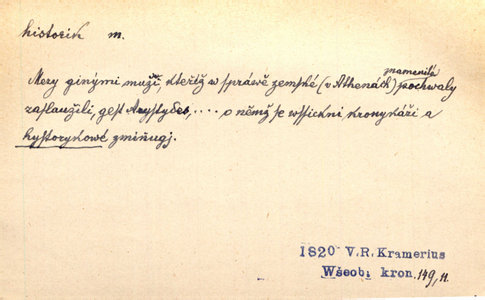 historik m.
Mezy ginými muži, kteříž w spráwě zemské (v Athenách) znamenité pochwaly
zasłaužili, gest Arystydes, .... o němž se wssickni kronykáři a
hystorykowé zmiňugj.
1820 V.R. Kramerius
Wšeob. kron. 149, 11.